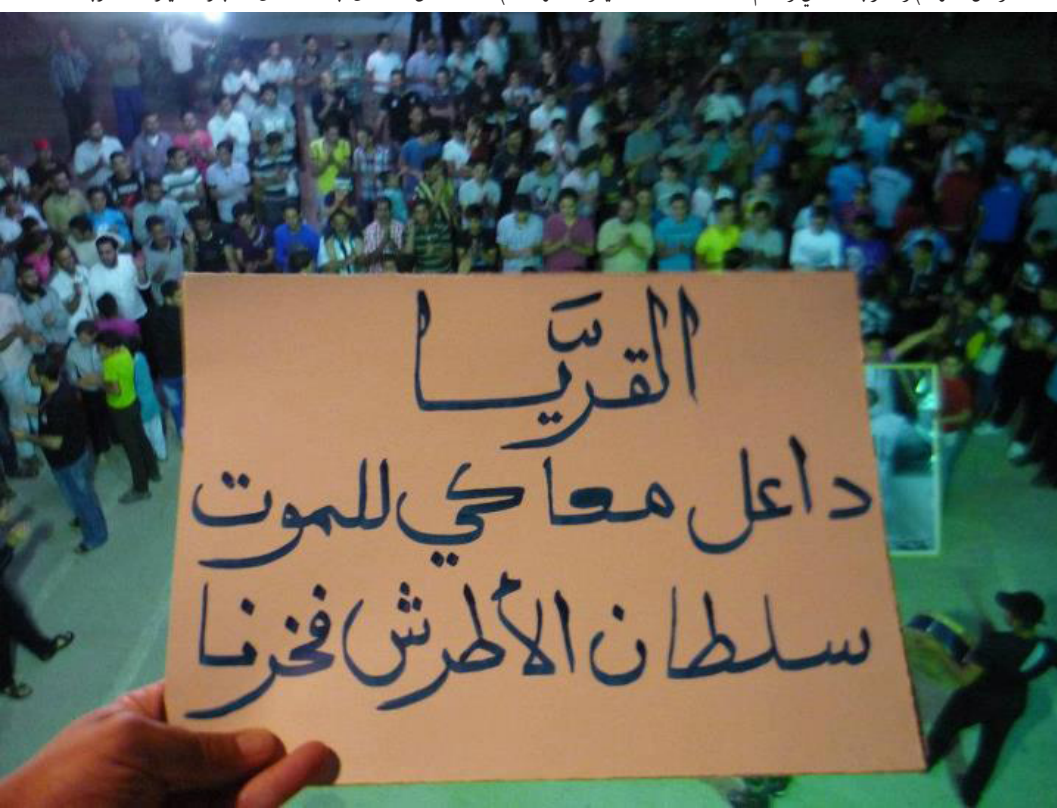 القريَّا
داعل معاكي للموت
سلطان الأطرش فخرنا